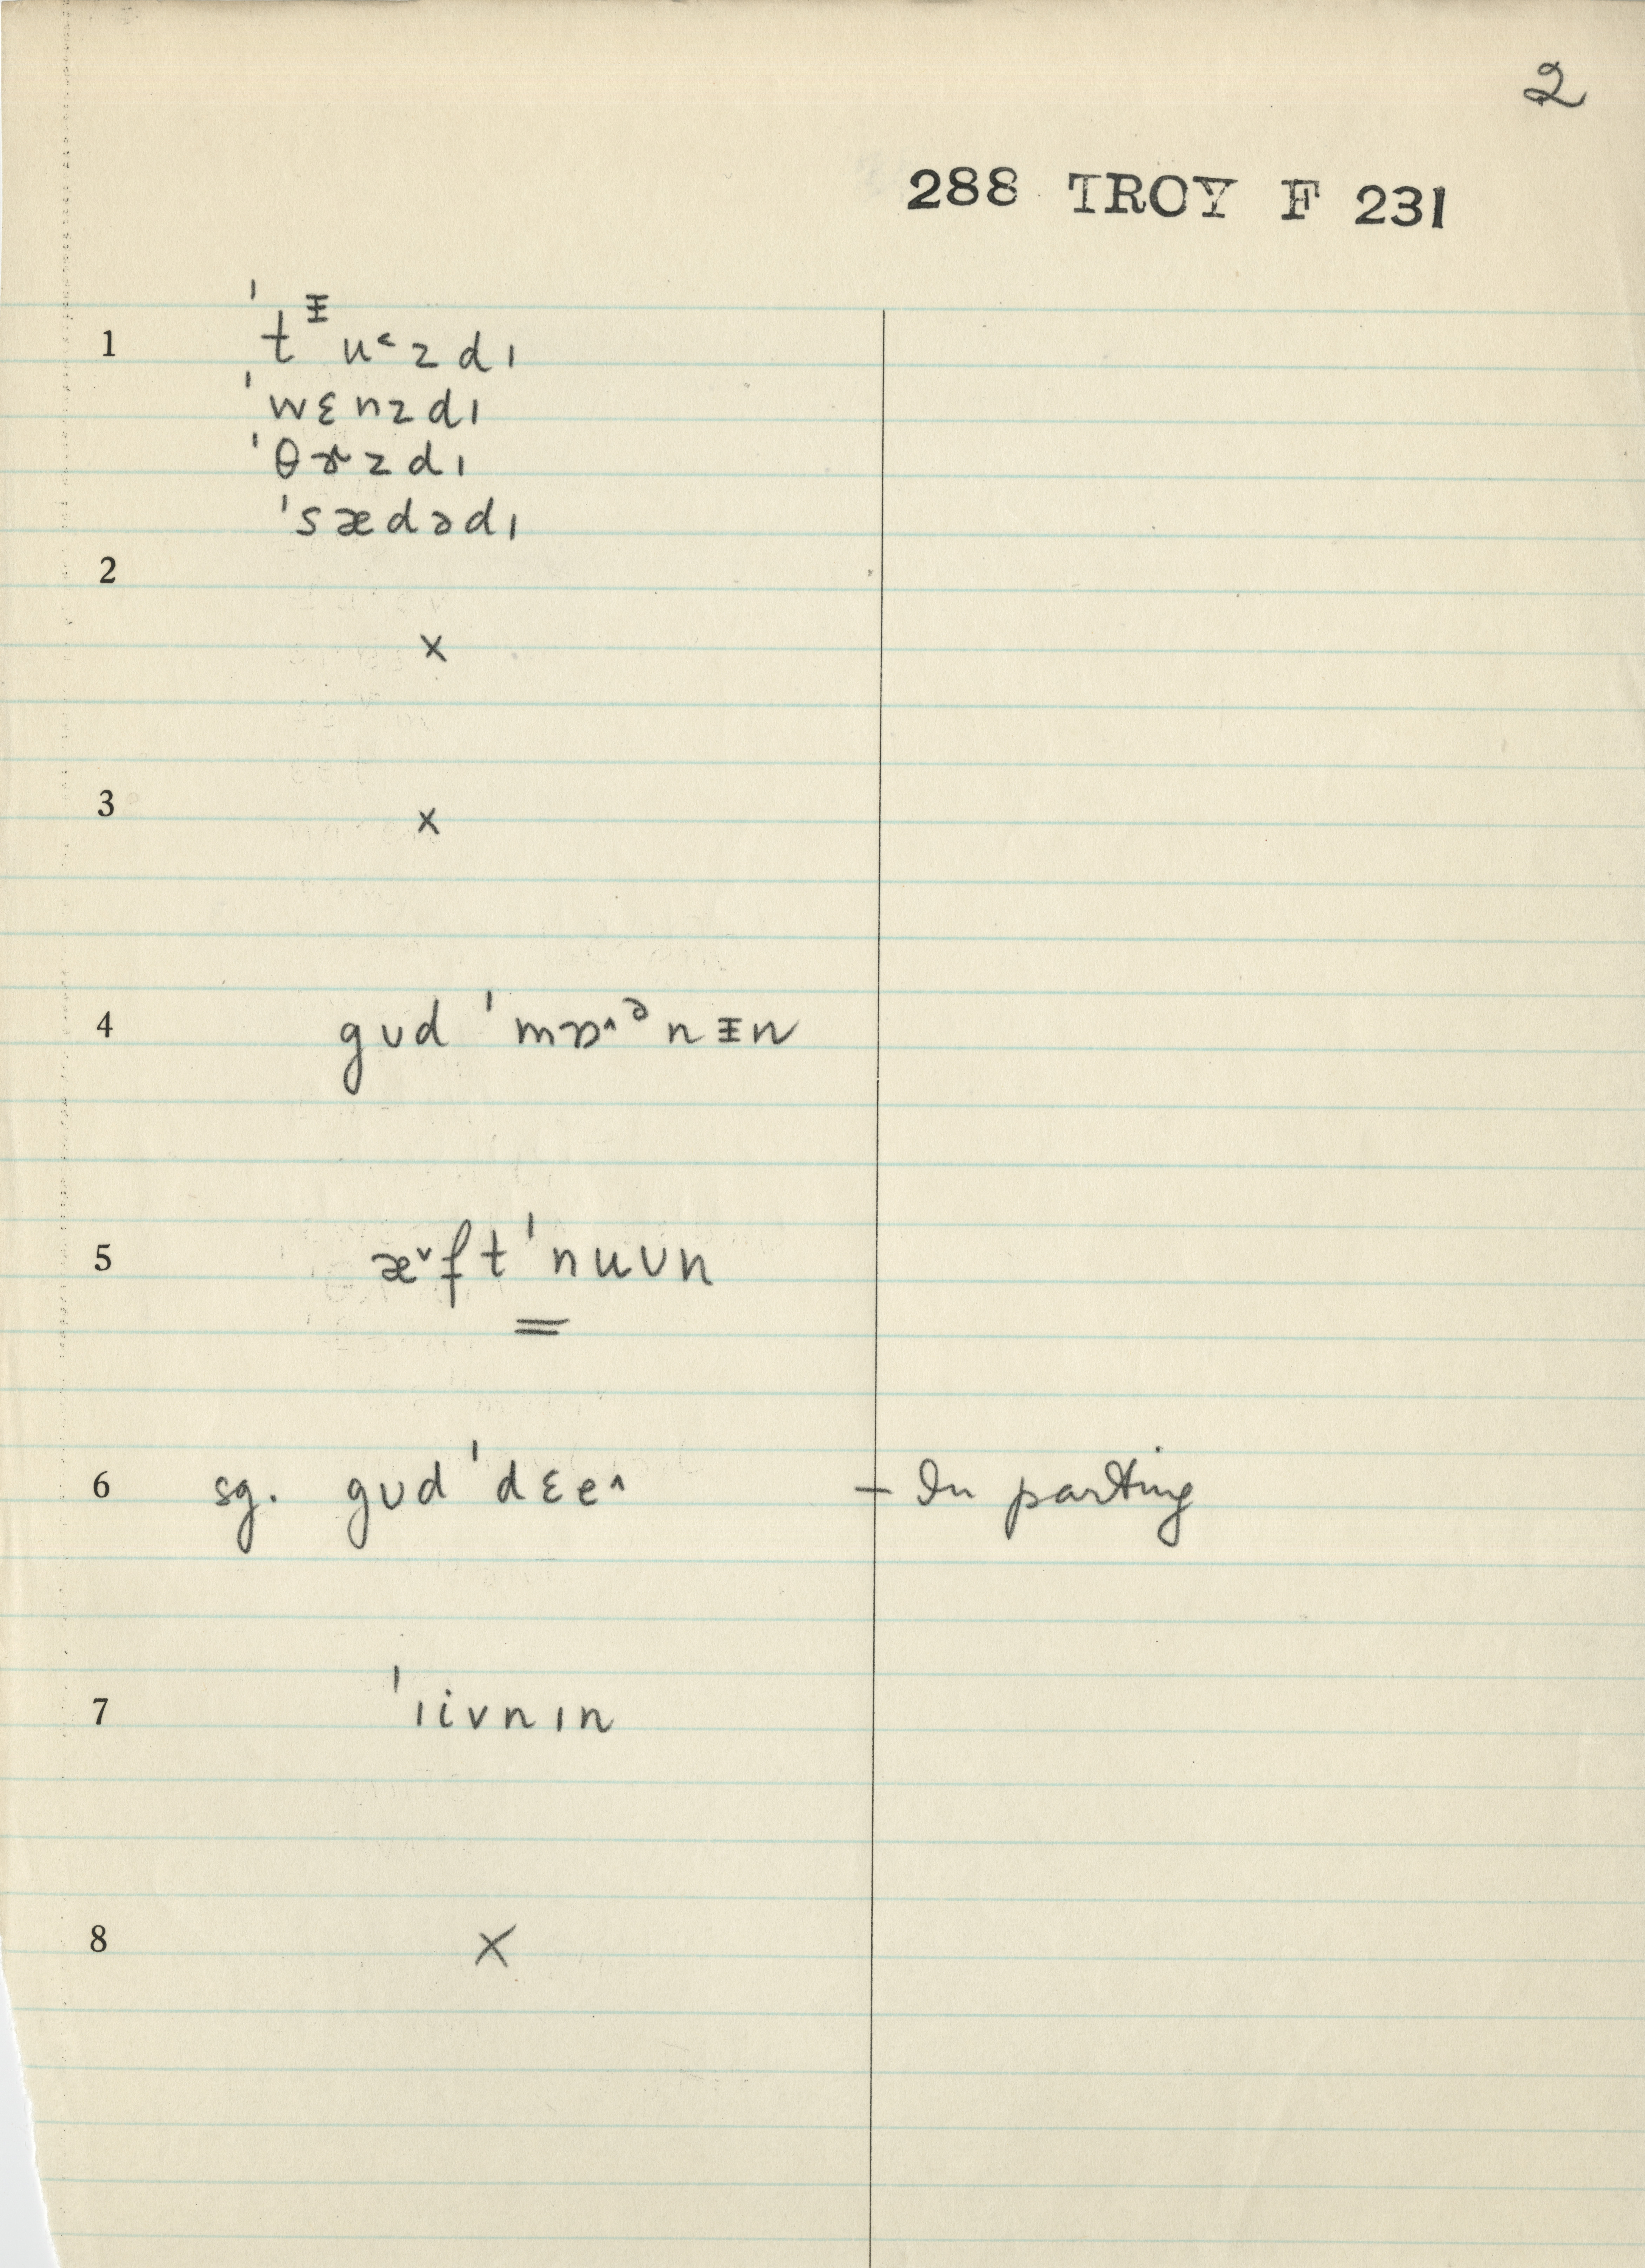 2
288 TROY F 231
1 ˈtᵻu˂zdɪ
ˈwɛnzdɪ
ˈθɝzdɪ
ˈsædədɪ
2
×
3 ×
4 gʊd ˈmɒ˄ᵊnᵻn
5 æ˅ftˈnuʊn
6 sg. gʊd ˈdɛe˄ – In parting
7 ˈɪivnɪn
8 ×